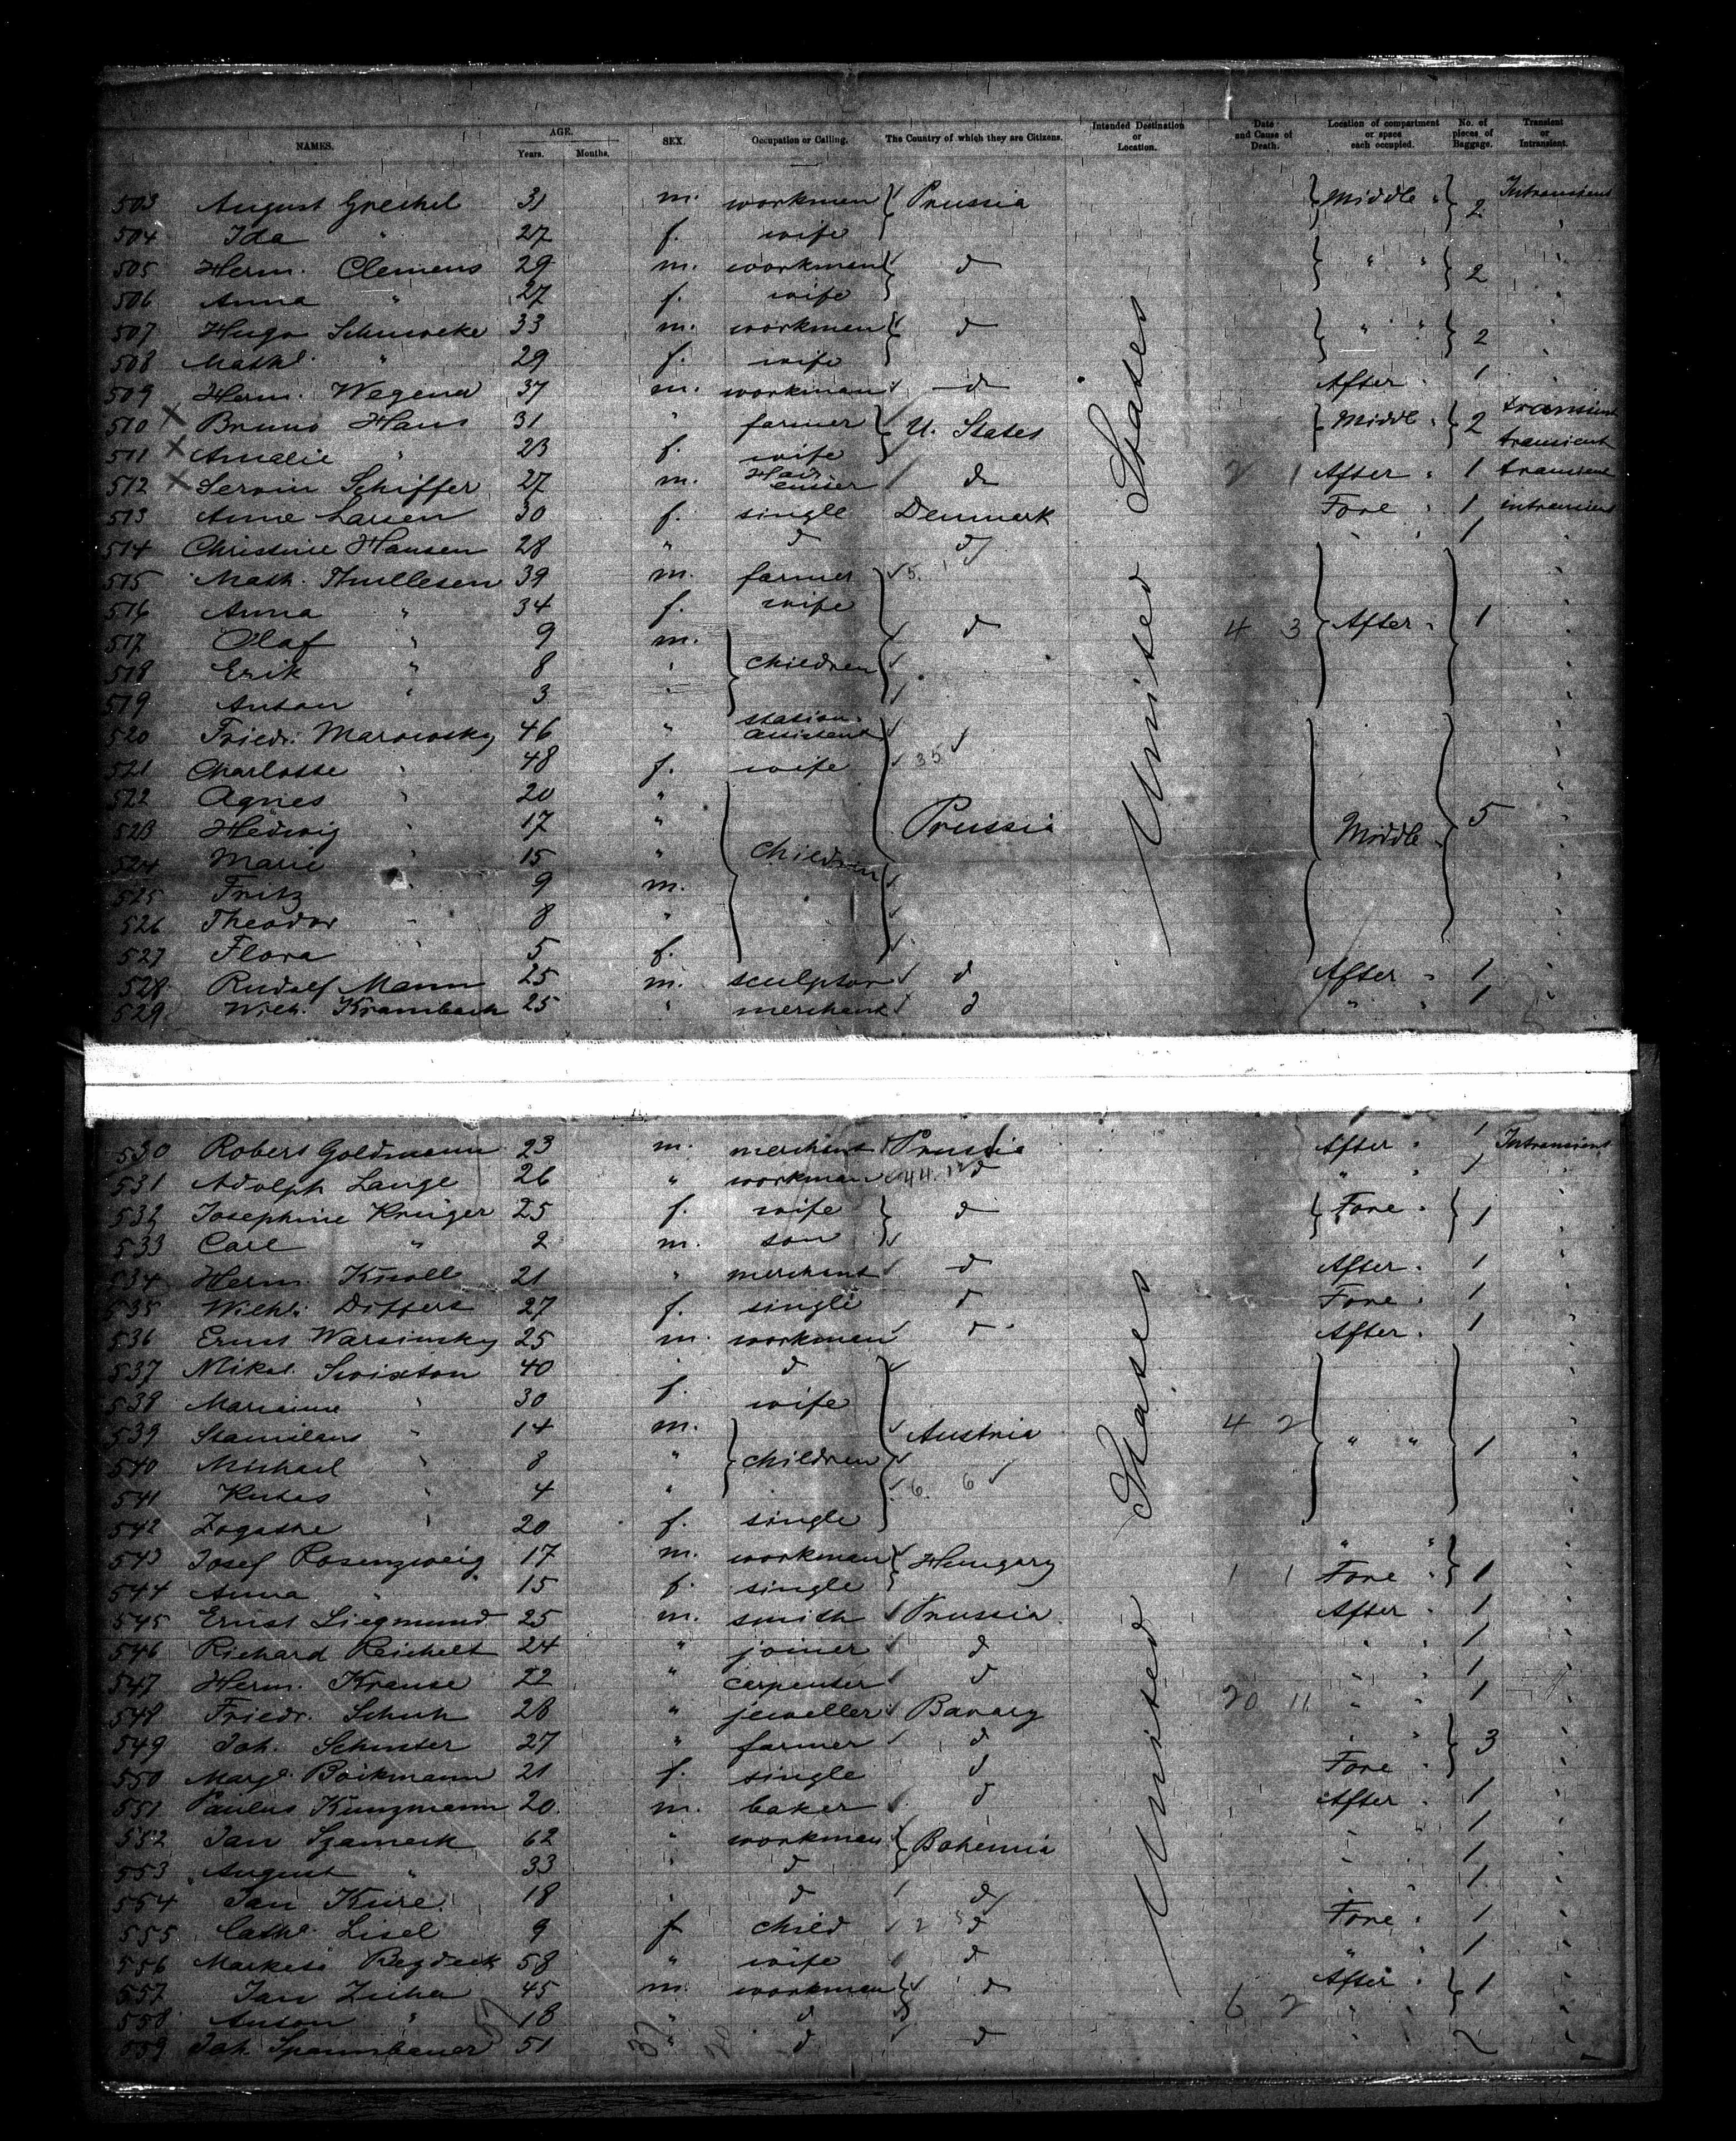 NAMES. AGE. Years. Months. SEX. Occupation or Calling. The Country of which they are Citizens. Intended Destination or Location. Date and Cause of Death. Location of compartment or space each occupied. No. of pieces of Baggage. Transient or Intransient.
503 August Greckel 31 m. workmen Prussia Middle 2 Intransient
504 Ida " 27 f. wife "
505 Herm. Clemens 29 m. workmen d " " 2 "
506 Anna " 27 f. wife "
507 Hugo 33 m. workmen d " " 2 "
508 Math. " 29 f. wife "
509 Herm. Wegend 37 m. workman d After 1 "
510 Bruno Hans 31 " farmer U. States Middl. 2 transient
511 Amalie " 23 f. wife transient
512 Schiffer 27 m. d 2 1 After 1 transient
513 Anne Larsen 30 f. single Denmark Fore 1 intransient
514 Christine Hansen 28 " d d " " 1 "
515 Math. Thullesen 39 m. farmer 5. "
516 Anna " 34 f. wife "
517 Olaf " 9 m. d 4 3 After 1 "
518 Erik " 8 " children "
519 Anton " 3 " "
520 Friedr. Marowsky 46 " station assistent "
521 Charlotte " 48 f. wife 35 "
522 Agnes " 20 " "
523 Hedwig " 17 " Prussia Middle 5 "
524 Marie " 15 " Children "
525 Fritz " 9 m. "
526 Theodor " 8 " "
527 Flora " 5 f. "
528 Rudolf Mann 25 m. sculptor d After 1 "
529 Wilh. Krambach 25 " merchant d " " 1 "
United States
530 Robert Goldmann 23 m. merchant Prussia After 1 Intransient
531 Adolph Lange 26 " workman 44. 12 d " 1 "
532 Josephine Krüger 25 f. wife d Fore 1 "
533 Carl " 2 m. son "
534 Herm. Knoll 21 " merchant d After 1 "
535 Wilh. Differt 27 f. single d Fore 1 "
536 Ernst Warsinsky 25 m. workmen d After 1 "
537 Mikol. Swixton 40 " d "
538 Marianne " 30 f. wife "
539 Stanislaus " 14 m. Austria 4 2 "
540 Michael " 8 " children " " 1 "
541 " 4 " 6. 6 "
542 Zogathe " 20 f. single "
543 Josef Rosenzweig 17 m. workman Hungary " " "
544 Anna " 15 f. single 1 1 Fore 1 "
545 Ernst Siegmund 25 m. smith Prussia After 1 "
546 Richard Reichelt 24 " joiner d " 1 "
547 Herm. Krause 22 " carpenter d " " 1 "
548 Friedr. Schuh 28 " jeweller Bavary 20 11 " " 1 "
549 Joh. Schuster 27 " farmer d " " 3 "
550 Margt. Böikmann 21 f. single d Fore "
551 Paulus Kunzmann 20 m. baker d After 1 "
552 Jan 62 " workman Bohemia " " 1 "
553 August " 33 " d " 1 "
554 Jan Kure 18 " d d " 1 "
555 Cath. Lisel 9 f child d Fore 1 "
556 Begdeck 58 " wife d " " 1 "
557 Jan Zuha 45 m. workmen d After 1 "
558 Anton " 18 " d 6 2 " " "
559 Joh. Spannbauer 51 " d d " 2 "
United States